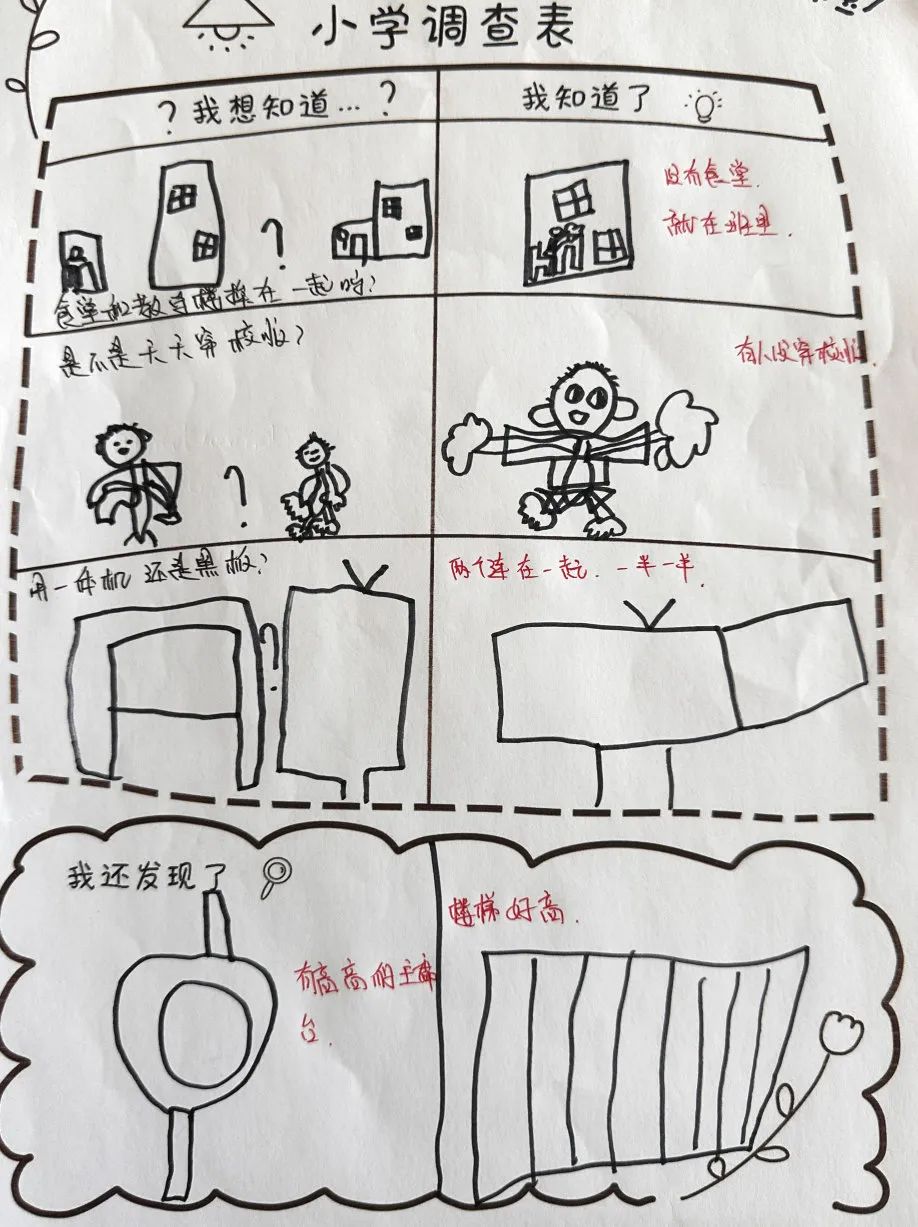 小学调查表
?我想知道...?
我知道了
?
没有食堂.
就在班里.
食堂和教学楼挨在一起吗?
是不是天天穿校服?
有人没穿校服.
?
用一体机还是黑板?
两个连在一起. 一半一半.
?
我还发现了
楼梯好高.
有高高的主席
台.